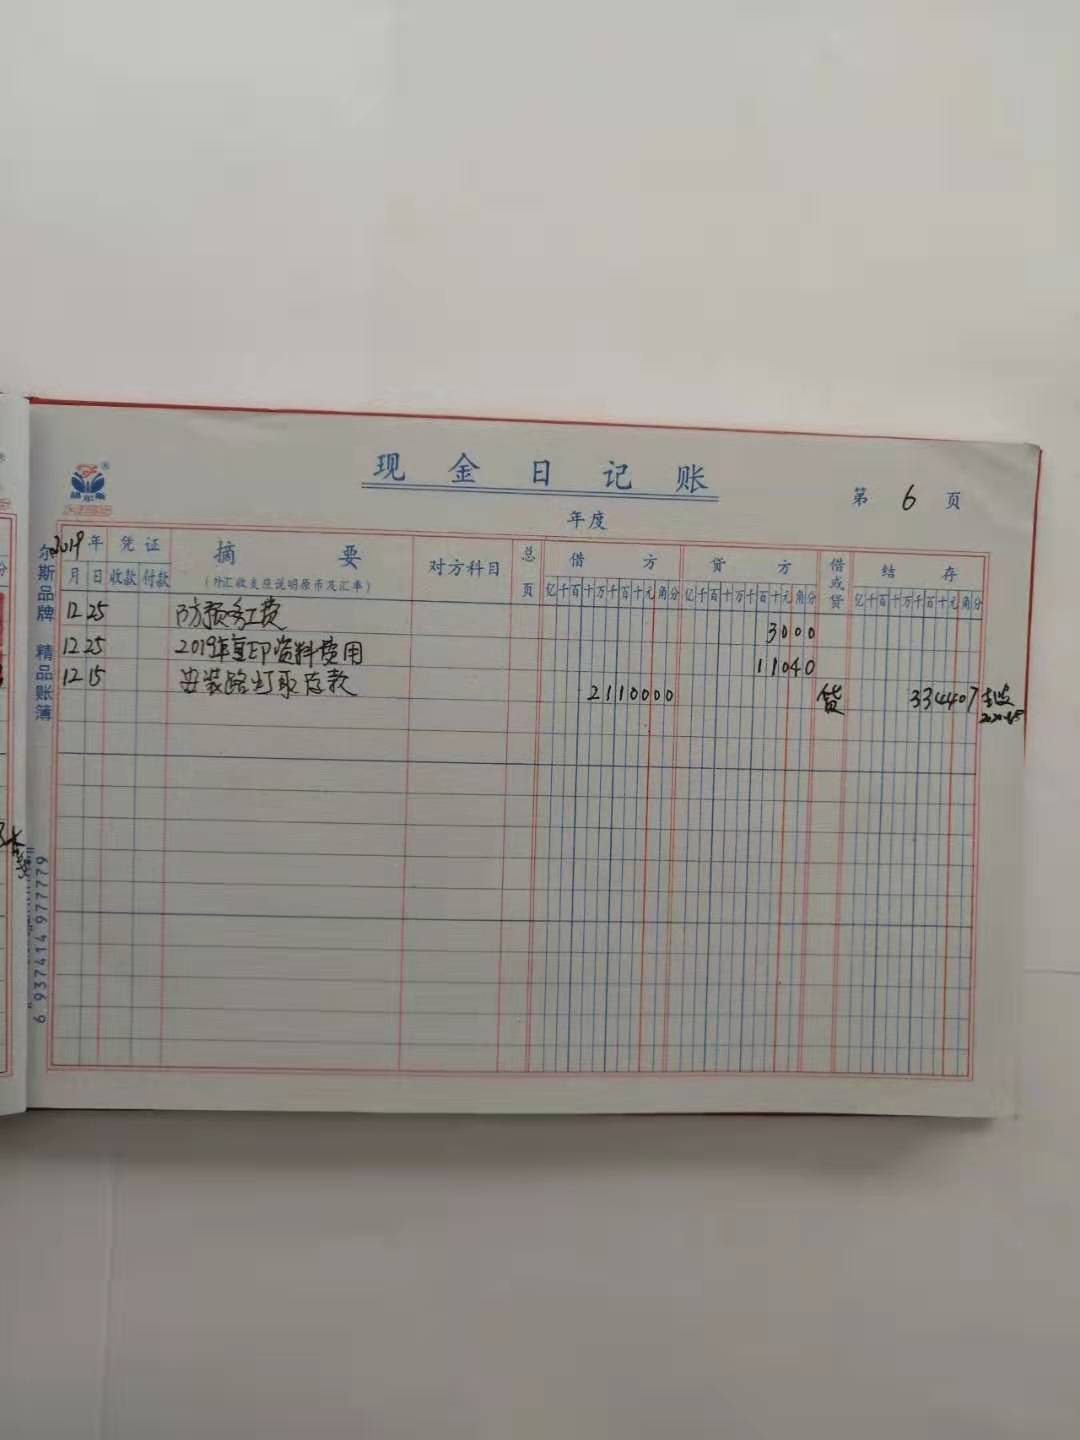 现金日记账
第 6 页
年度
2019年 凭证 摘要 对方科目 总页 借方 贷方 借或贷 结存
月 日 收款 付款 (外汇收支应说明原币及汇率) 亿千百十万千百十元角分 亿千百十万千百十元角分 亿千百十万千百十元角分
12 25 3000
12 25 2019年复印资料费用 11040
12 15 安装路灯取总款 2110000 贷 334407
尔斯品牌 精品账簿
6 937414 977779